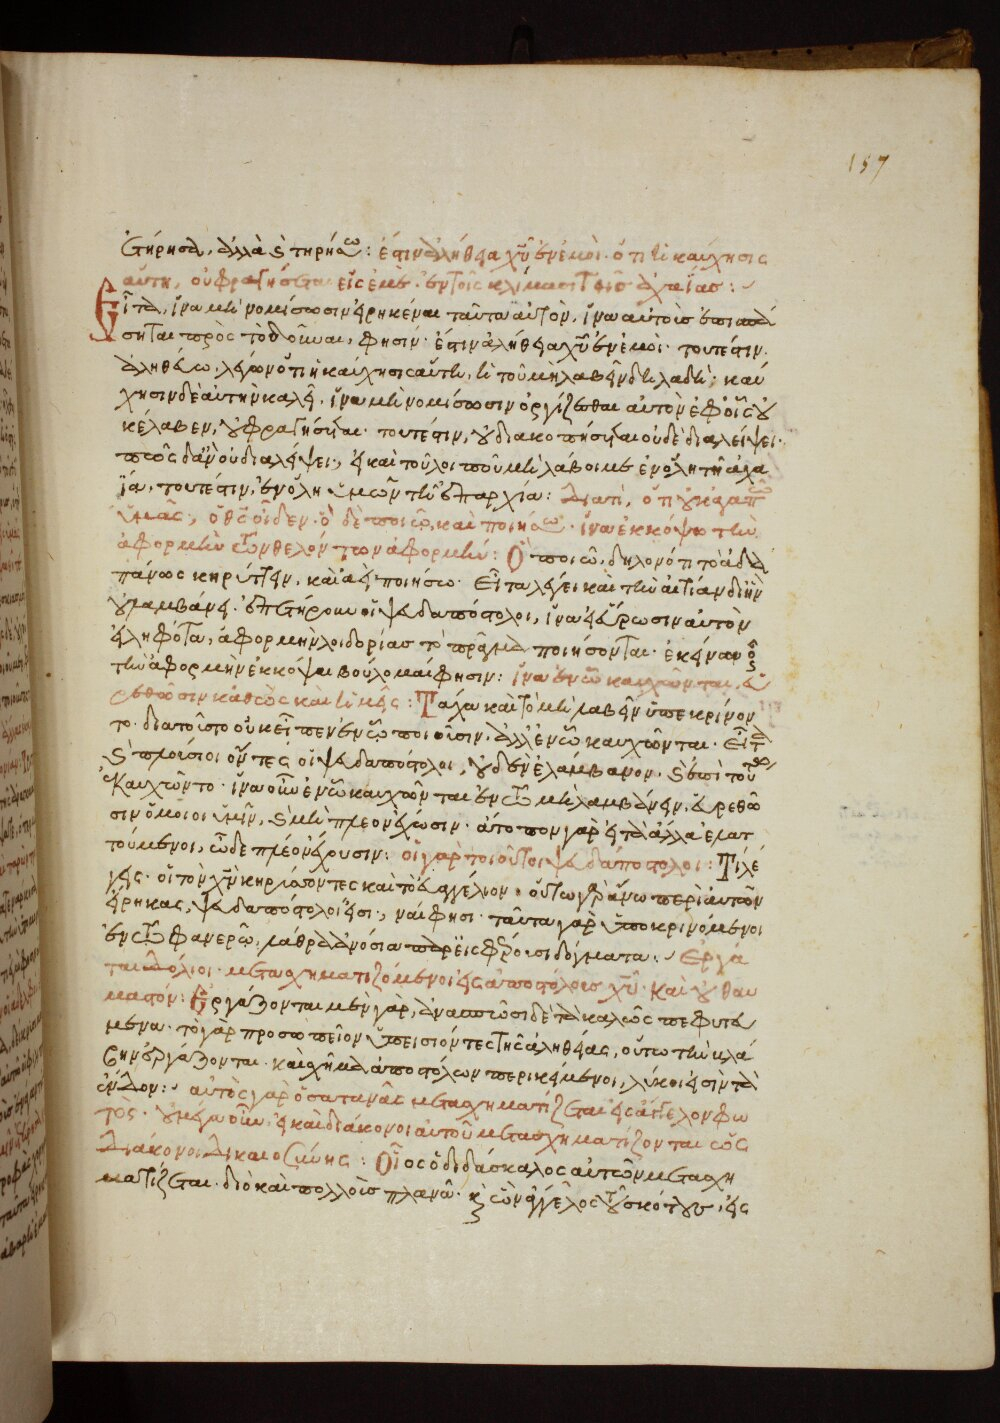 157
ἐτήρησα, ἀλλὰ καὶ τηρήσω: ἔστιν ἀλήθεια χῦ ἐν ἐμοὶ· ὅτι ἡ καύχησις
αὕτη, οὐ φραγήσεται εἰς ἐμὲ· ἐν τοῖς κλίμασι τῆς ἀχαΐας:
Εἶτα, ἵνα μὴ νομίσωσιν εἰρηκέναι ταῦτα αὐτὸν, ἵνα αὐτοὺς ἐπισπά
σηται πρὸς τὸ δοῦναι, φησίν· ἔστιν ἀλήθεια χῦ ἐν ἐμοι· τουτέστιν·
ἀληθεύω, λέγων ὅτι ἡ καύχησις αὕτη, ἡ τοῦ μὴ λαβεῖν δηλαδή· καύ
χησιν δὲ αὐτὴν καλεῖ, ἵνα μὴ νομίσωσιν ὀργίζεσθαι αὐτὸν ἐφ οἷς οὐ
κ ἔλαβεν, οὐ φραγήσεται· τουτέστιν, οὐ διακοπήσεται οὐδὲ διαλείψει·
πῶς δ ἂν οὐ διαλείψει, εἰ καὶ τοῦ λοιποῦ μὴ λάβοιμι ἐν ὅλη τῆ ἀχα
ΐα, τουτέστιν, ἐν ὅλη ὑμῶν τῆ ἐπαρχία: Διατί, ὅτι οὐκ ἀγαπῶ
ὑμᾶς, ὁ θς οἶδεν· ὃ δὲ ποιῶ, καὶ ποιήσω· ἵνα ἐκκόψω τὴν
ἀφορμὴν τῶν θελόντων ἀφορμήν: Ὃ ποιῶ, δηλονότι τὸ ἀδα
πάνως κηρύττειν, καὶ ἀεὶ ποιήσω· Εἶτα λέγει καὶ τὴν αἰτίαν δι ἣν
οὐ λαμβάνει· ἐπετήρουν οἱ ψευδαπόστολοι, ἵνα εἰ εὕρωσιν αὐτὸν
εἰληφότα, ἀφορμὴν λοιδορίας τὸ πρᾶγμα ποιήσονται· ἐκείνην οὖν
τὴν ἀφορμὴν ἐκκόψαι βούλομαί φησιν: ἵνα ἐν ὧ καυχῶνται, εὑ
ρεθῶσιν καθὼς καὶ ἡμεῖς: Τάχα καὶ τὸ μὴ λαβεῖν ὑπεκρίνον
το· διατοῦτο οὐκ εἶπεν ἐν ὧ ποιοῦσιν, ἀλλ ἐν ὧ καυχῶνται· Εἶτα
καὶ πλούσιοι ὄντες οἱ ψευδαπόστολοι, οὐδὲν ἐλάμβανον, καὶ ἐπὶ τούτω
ἐκαυχῶντο· ἵνα οὖν ἐν ὧ καυχῶνται ἐν τῶ μὴ λαμβάνειν, εὑρεθῶ
σιν ὅμοιοι ἡμῖν, καὶ μὴ πλέον ἔχωσιν· ἄτοπον γὰρ εἰ τὰ ἄλλα ἐλατ
τούμενοι, ὧδε πλέον ἔχουσιν: οἱ γὰρ τοιοῦτοι ψευδαπόστολοι: Τί λέ
γεις· οἱ τὸν χν κηρύσσοντες καὶ τὸ εὐαγγέλιον· οὕτω γὰρ ἄνω περὶ αὐτῶν
εἴρηκας, ψευδαπόστολοι εἰσι, ναί φησι· ταῦτα γὰρ ὑποκρινόμενοι
ἐν τῶ φανερῶ, λάθρα ἀνόσια παρεισφέρουσι δόγματα: Ἐργά
ται δόλιοι· μετασχηματιζόμενοι εἰς ἀποστόλους χῦ· Καὶ οὐ θαυ
μαστόν: Ἐργάζονται μὲν γὰρ, ἀνασπῶσι δὲ τὰ καλῶς πεφυτευ
μένα· τὸ γὰρ προσωπεῖον ὑπεισιόντες τῆς ἀληθείας, οὕτω τὴν πλά
νην ἐργάζονται· καὶ σχῆμα ἀποστόλων περικείμενοι, λύκοι εἰσὶν τὰ
ἔνδον: αὐτὸς γὰρ ὁ σατανᾶς μετασχηματίζεται εἰς ἄγγελον φω
τός· οὐ μέγα οὖν, εἰ καὶ διάκονοι αὐτοῦ μετασχηματίζονται ὡς
Διάκονοι δικαιοσύνης: Οἷος ὁ διδάσκαλος αὐτῶν μετασχη
ματίζεται· διὸ καὶ πολλοὺς πλανᾶ· καὶ ὢν ἄγγελος τοῦ σκότους, εἰς